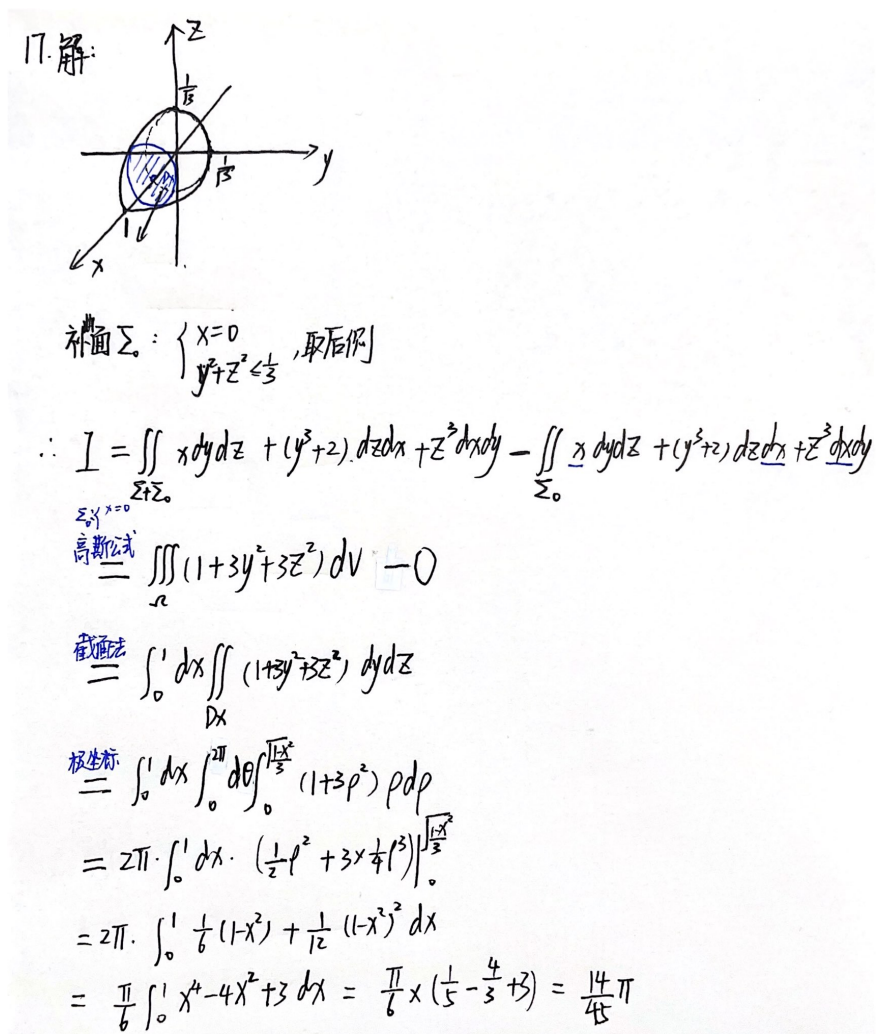 17.解:
z
1/√3
y
1/√3
1
x
补面Σ₀: { x=0
y²+z²≤1/3 ,取后侧
∴ I = ∬_{Σ+Σ₀} xdydz + (y³+2)dzdx + z³dxdy - ∬_{Σ₀} xdydz + (y³+2)dzdx + z³dxdy
Σ₀: x=0
高斯公式
= ∭_Ω (1+3y²+3z²)dV - 0
截面法
= ∫₀¹ dx ∬_{Dx} (1+3y²+3z²) dydz
极坐标
= ∫₀¹ dx ∫₀^{2π} dθ ∫₀^{√((1-x²)/3)} (1+3ρ²) ρdρ
= 2π·∫₀¹ dx·(1/2 ρ² + 3×1/4 ρ³)|₀^{√((1-x²)/3)}
= 2π·∫₀¹ 1/6 (1-x²) + 1/12 (1-x²)² dx
= π/6 ∫₀¹ x⁴-4x²+3 dx = π/6 × (1/5 - 4/3 + 3) = 14/45 π